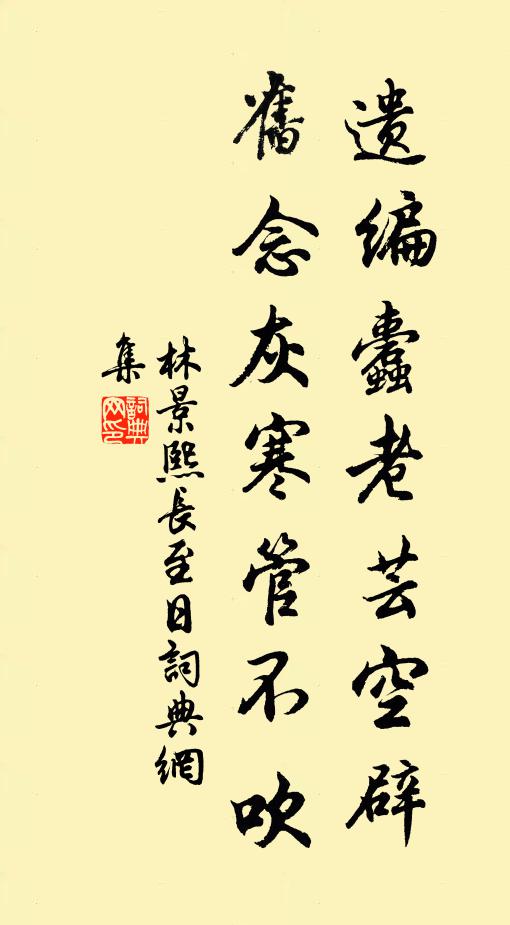 遗编蠹老芸空辟
舊念灰寒管不吹
林景熙長至日詞典網
集
詞典网印